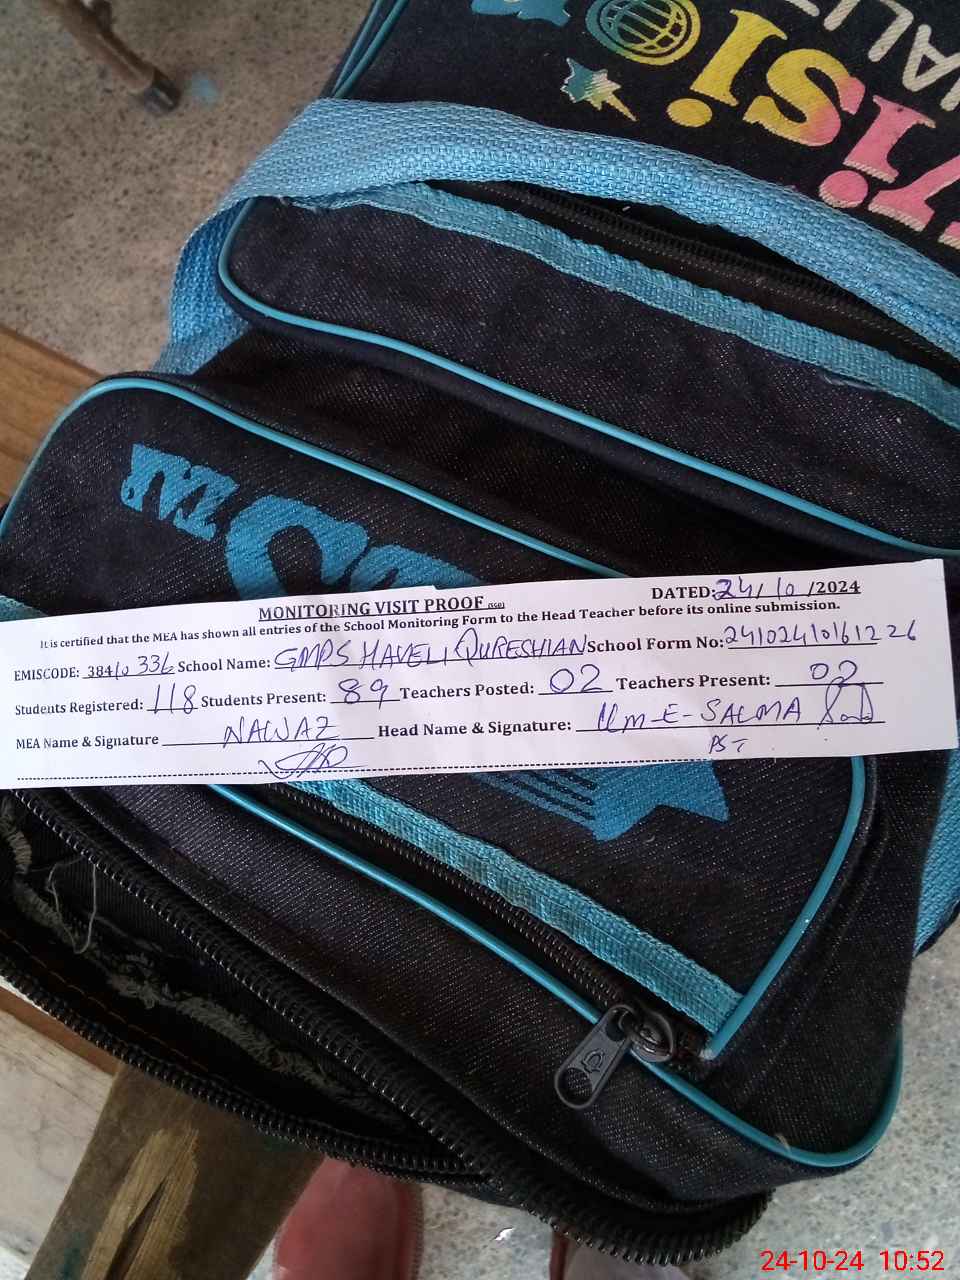 MONITORING VISIT PROOF (SSB) DATED: 24/10/2024
It is certified that the MEA has shown all entries of the School Monitoring Form to the Head Teacher before its online submission.
EMISCODE: 38410336 School Name: GMPS HAVELI QURESHIAN School Form No: 24102410161226
Students Registered: 118 Students Present: 89 Teachers Posted: 02 Teachers Present: 02
MEA Name & Signature NAWAZ Head Name & Signature: Um-E-SALMA
PST
24-10-24 10:52